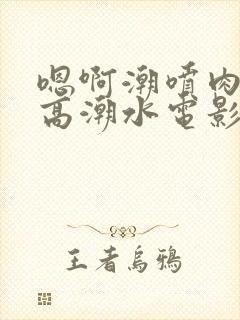 嗯啊潮喷肉
高潮水电影
王者乌鸦